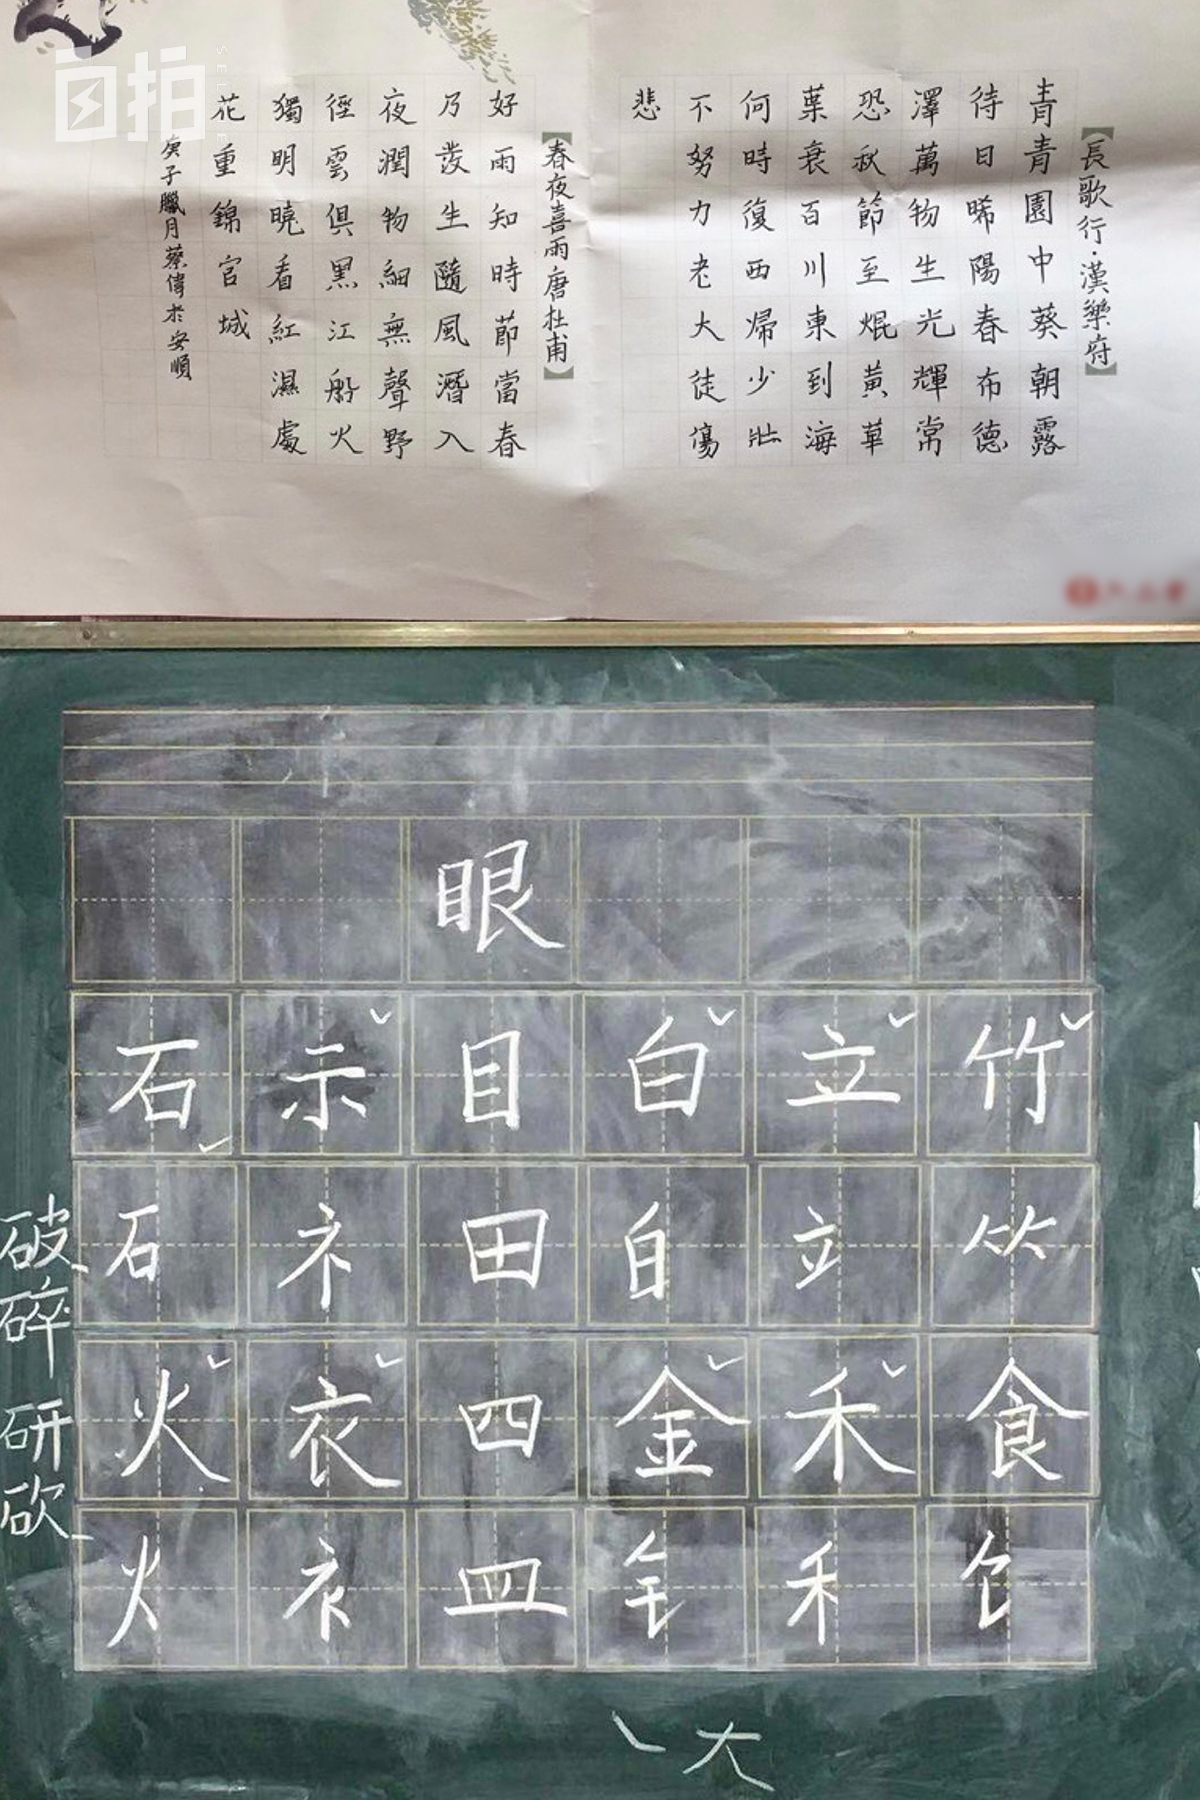 自拍
SELFIE
【長歌行·漢樂府】
青青園中葵朝露
待日晞陽春布德
澤萬物生光輝常
恐秋節至焜黃華
葉衰百川東到海
何時復西歸少壯
不努力老大徒傷
悲
【春夜喜雨唐杜甫】
好雨知時節當春
乃發生隨風潛入
夜潤物細無聲野
徑雲俱黑江船火
獨明曉看紅濕處
花重錦官城
庚子臘月蔡偉於安順
眼
石 示 目 白 立 竹
石 礻 田 白 立 ⺮
火 衣 四 金 禾 食
火 衤 罒 钅 禾 饣
破碎
研砍
大